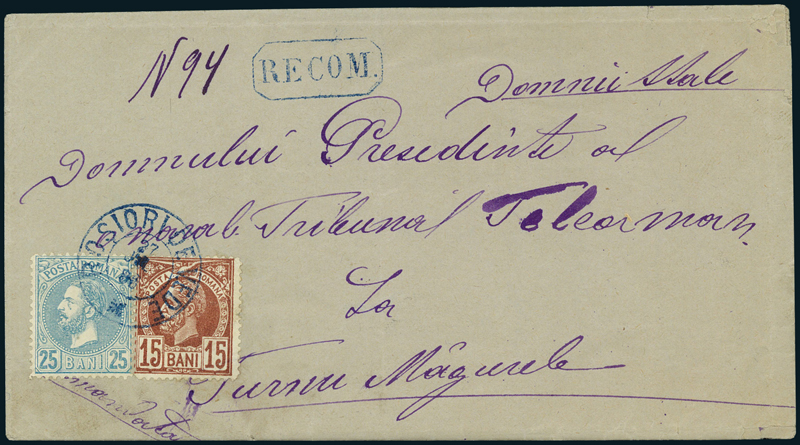 N 94
RECOM.
Domnii Sale
Domnului Presedinte al
Onorab Tribunal Teleorman
La
Turnu Măgurele
POSTA ROMANA
25 BANI 25
POSTA ROMANA
15 BANI 15
ROSIORI DE VEDE